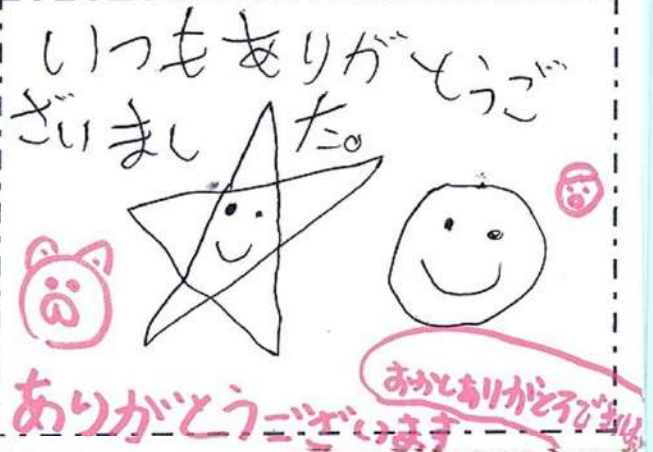 いつもありがとうご
ざいました。
ありがとうございます
おかしありがとうご